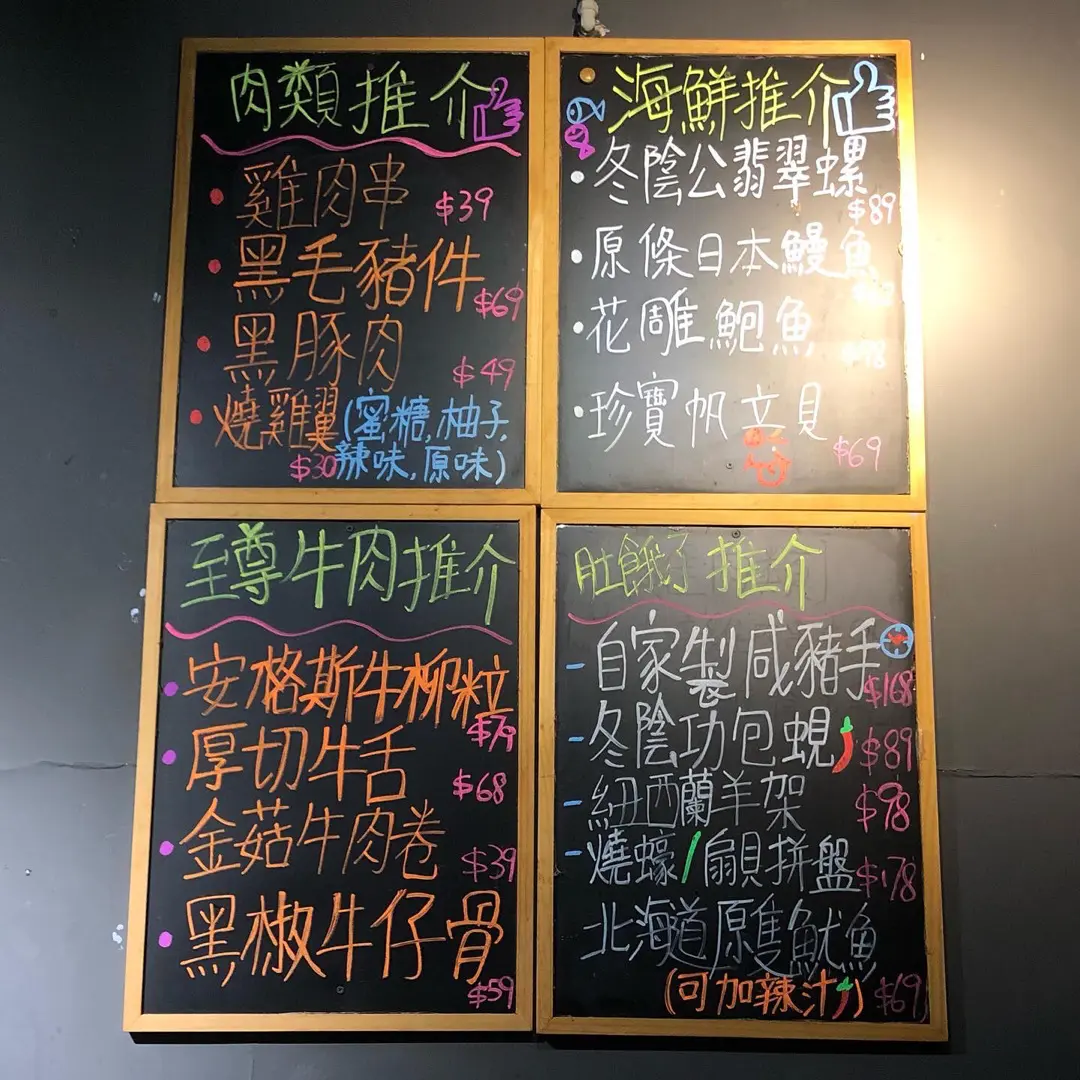 肉類推介
雞肉串 $39
黑毛豬件 $69
黑豚肉 $49
燒雞翼(蜜糖,柚子,
$30 辣味,原味)
海鮮推介
冬陰公翡翠螺 $89
原條日本鰻魚
花雕鮑魚
珍寶帆立貝 $69
至尊牛肉推介
安格斯牛柳粒 $79
厚切牛舌 $68
金菇牛肉卷 $39
黑椒牛仔骨 $59
肚餓了推介
自家製咸豬手 $168
冬陰功包蜆 $89
紐西蘭羊架 $98
燒蠔/扇貝拼盤 $178
北海道原隻魷魚
(可加辣汁) $69